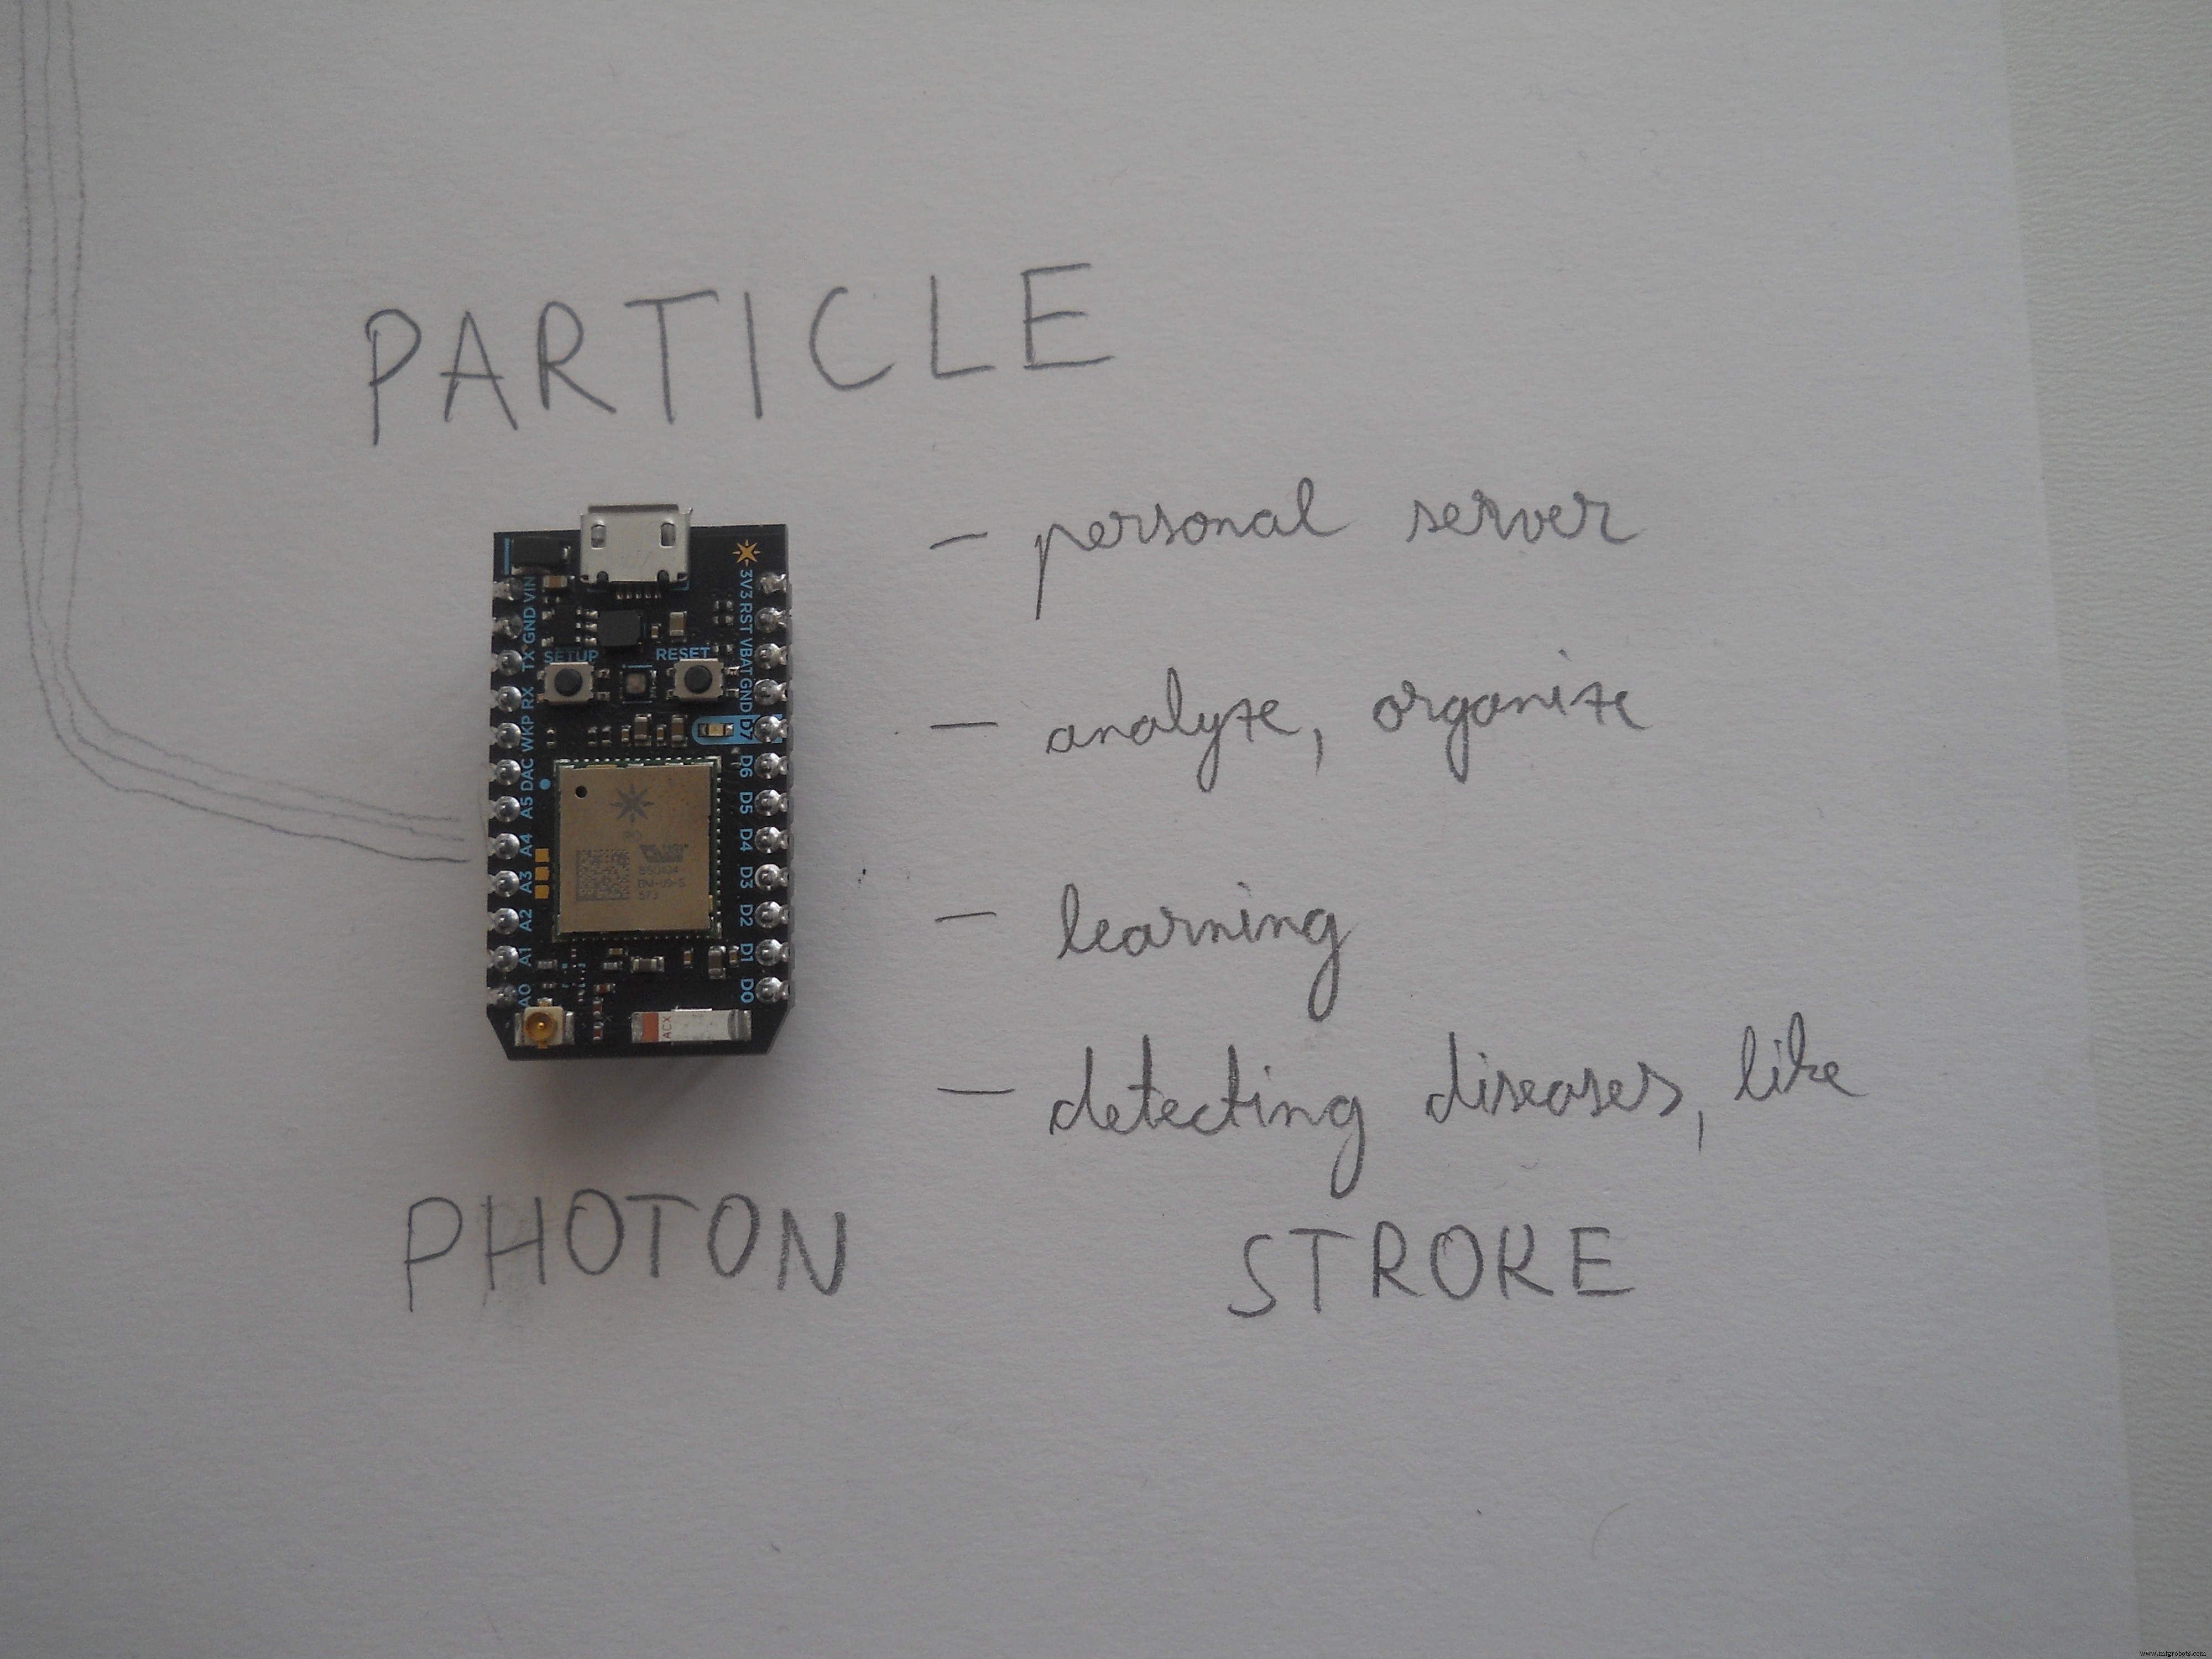 PARTICLE
- personal server
- analyze, organize
- learning
- detecting diseases, like
STROKE
PHOTON
VIN
GND
TX
RX
WKP
DAC
A5
A4
A3
A2
A1
A0
SETUP
RESET
3V3
RST
VBAT
GND
D7
D6
D5
D4
D3
D2
D1
D0
ACX
www.mfgrobots.com